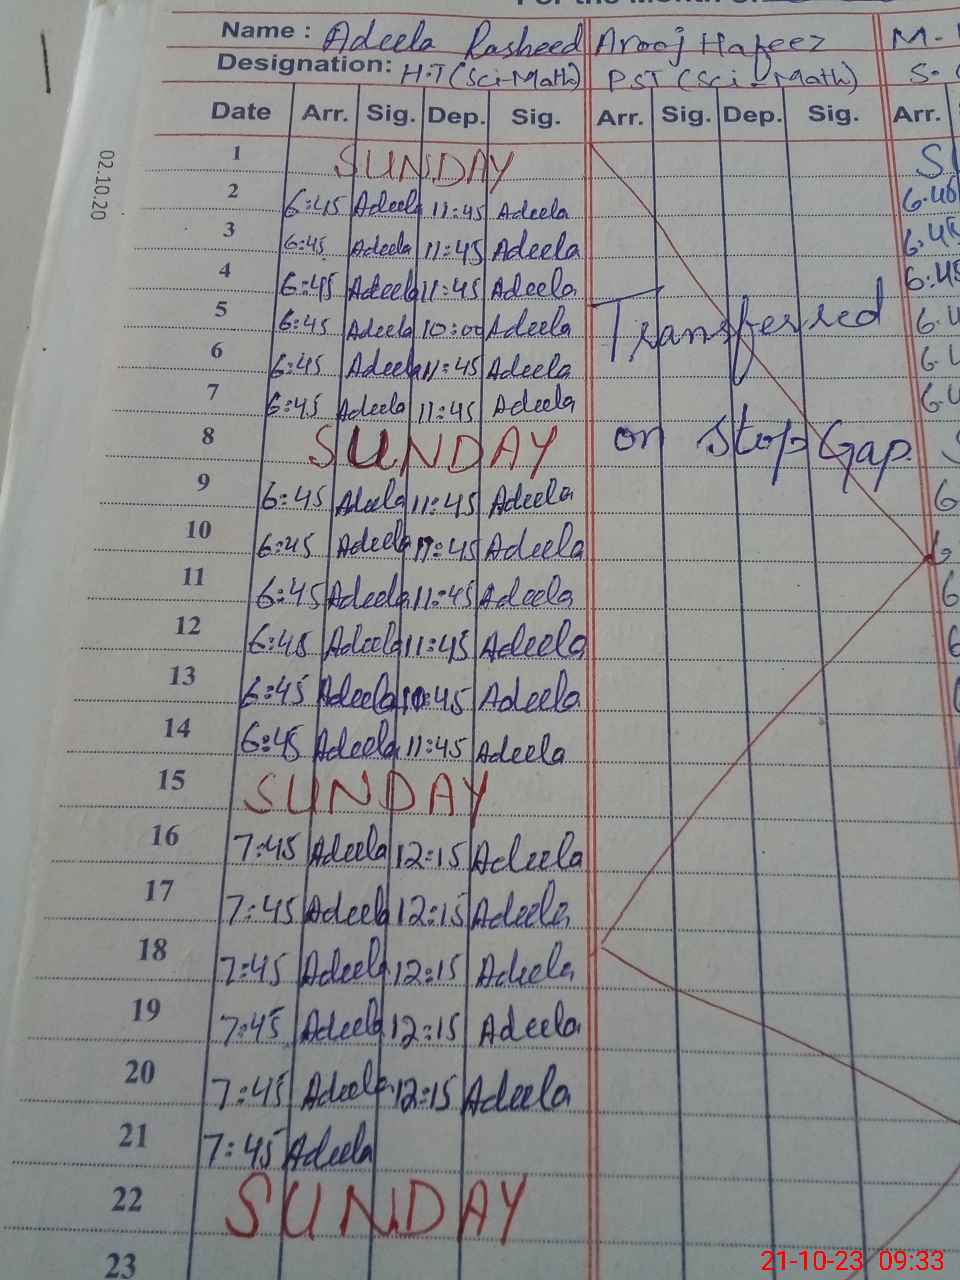 Name : Adeela Rasheed Arooj Hafeez M.
Designation: H.T (Sci-Math) PST (Sci-Math) S.
Date Arr. Sig. Dep. Sig. Arr. Sig. Dep. Sig. Arr.
02.10.20
1 SUNDAY
2 6:45 Adeela 11:45 Adeela
3 6:45 Adeela 11:45 Adeela
4 6:45 Adeela 11:45 Adeela 6:45
5 6:45 Adeela 10:00 Adeela Transferred
6 6:45 Adeela 11:45 Adeela
7 6:45 Adeela 11:45 Adeela
8 SUNDAY on Stop Gap.
9 6:45 Adeela 11:45 Adeela
10 6:45 Adeela 11:45 Adeela
11 6:45 Adeela 11:45 Adeela
12 6:45 Adeela 11:45 Adeela
13 6:45 Adeela 10:45 Adeela
14 6:45 Adeela 11:45 Adeela
15 SUNDAY
16 7:45 Adeela 12:15 Adeela
17 7:45 Adeela 12:15 Adeela
18 7:45 Adeela 12:15 Adeela
19 7:45 Adeela 12:15 Adeela
20 7:45 Adeela 12:15 Adeela
21 7:45 Adeela
22 SUNDAY
23
21-10-23 09:33